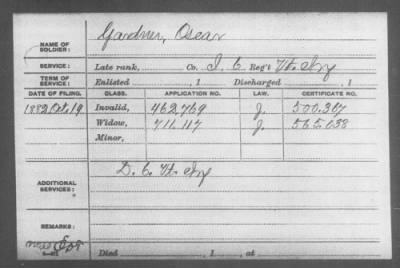 NAME OF SOLDIER: Gardner, Oscar
SERVICE: Late rank, Co. I. C. Reg't Vt. Inf
TERM OF SERVICE: Enlisted , 1 Discharged , 1
DATE OF FILING. CLASS. APPLICATION NO. LAW. CERTIFICATE NO.
1882 Oct. 19 Invalid, 462.769 J. 500.367
Widow, 711.117 J. 565.638
Minor,
ADDITIONAL SERVICES: D. C. Vt. Inf
REMARKS:
Died , 1 , at